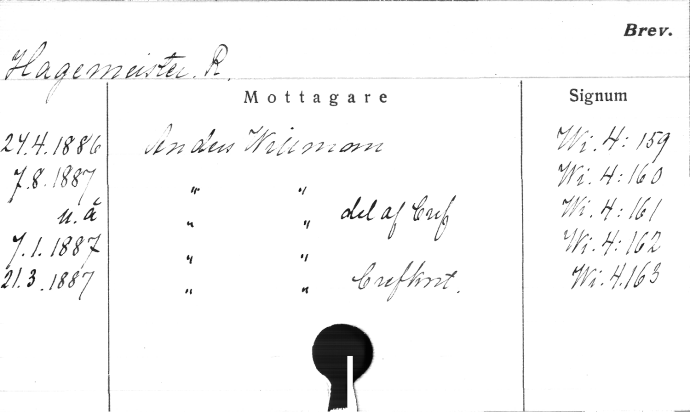 Brev.
Hagemeister. R.
Mottagare Signum
24.4.1886 Anders Willman Wi. 4: 159
7.8.1887 " " Wi. 4: 160
u.å " " del af bref Wi. 4: 161
7.1.1887 " " Wi. 4: 162
21.3.1887 " " Brefkort. Wi. 4.163